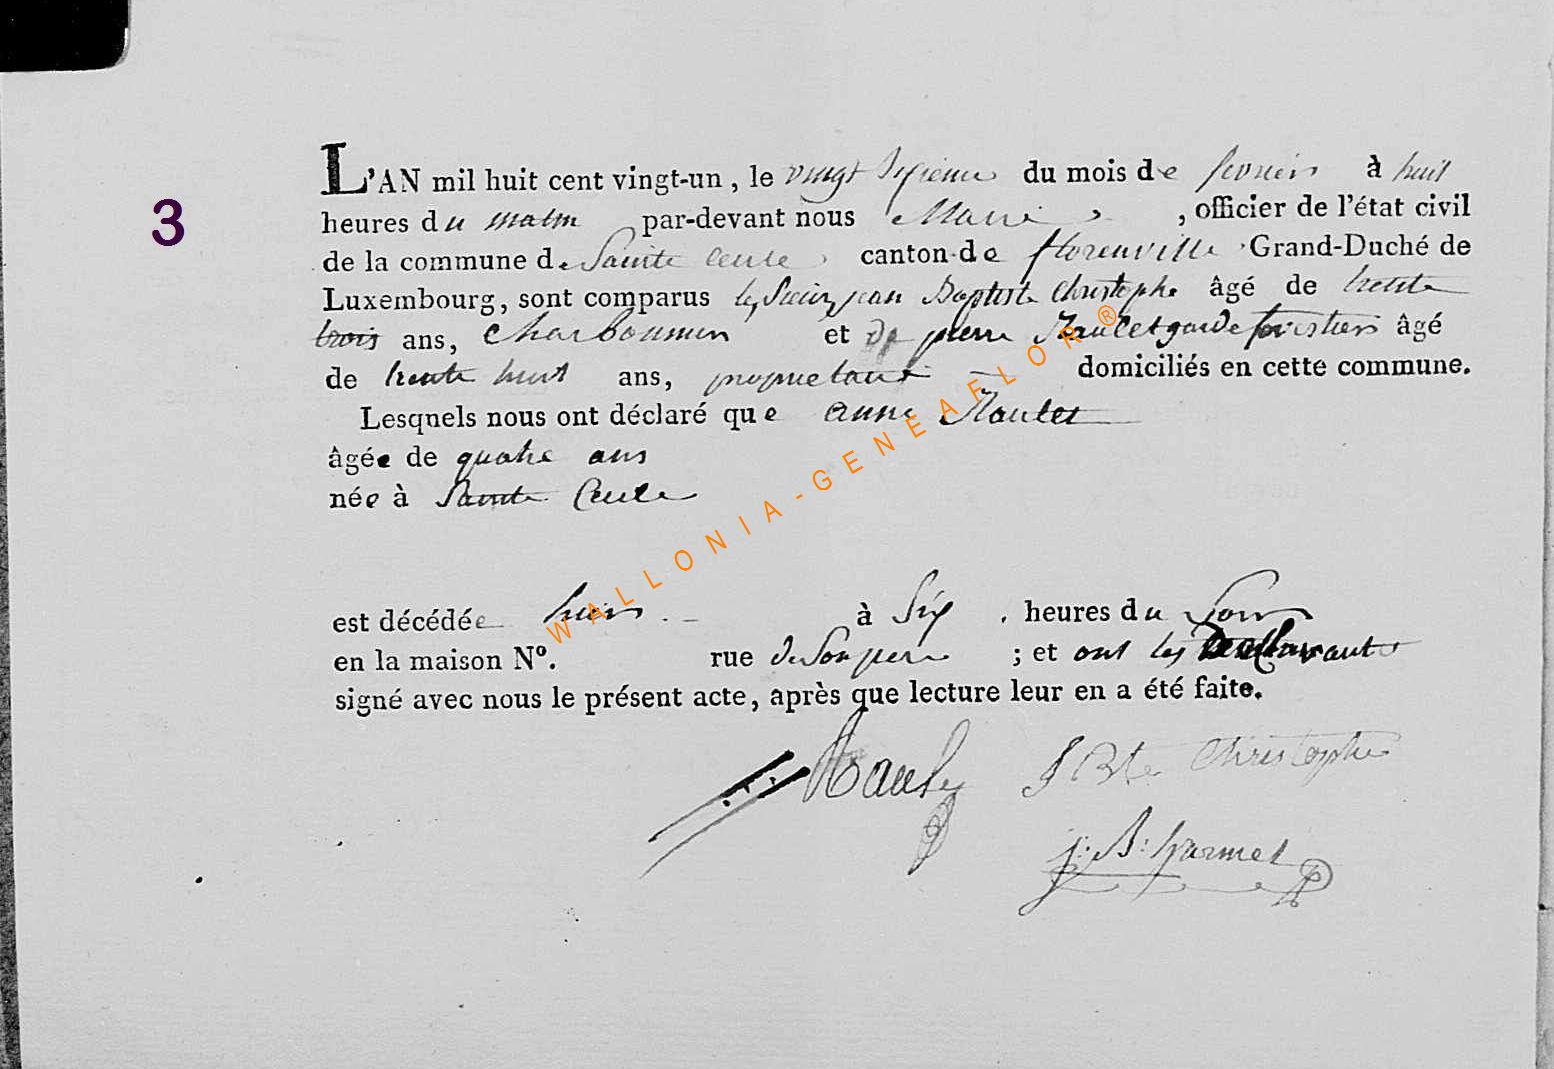 3
L'AN mil huit cent vingt-un, le vingt sixieme du mois de fevrier à huit
heures du matin par-devant nous Maire, officier de l'état civil
de la commune de Sainte Cecile canton de florenville Grand-Duché de
Luxembourg, sont comparus les Sieurs jean Baptiste christophe âgé de trente
trois ans, charbonnier et de pierre Maulet garde forestier âgé
de trente huit ans, proprietaire domiciliés en cette commune.
Lesquels nous ont déclaré que anne Maulet
âgée de quatre ans
née à Sainte Cecile
est décédée hier à Six heures du Soir
en la maison N°. rue ; et ont les declarants
signé avec nous le présent acte, après que lecture leur en a été faite.
J Bte Christophe
WALLONIA-GENEAFLOR ®